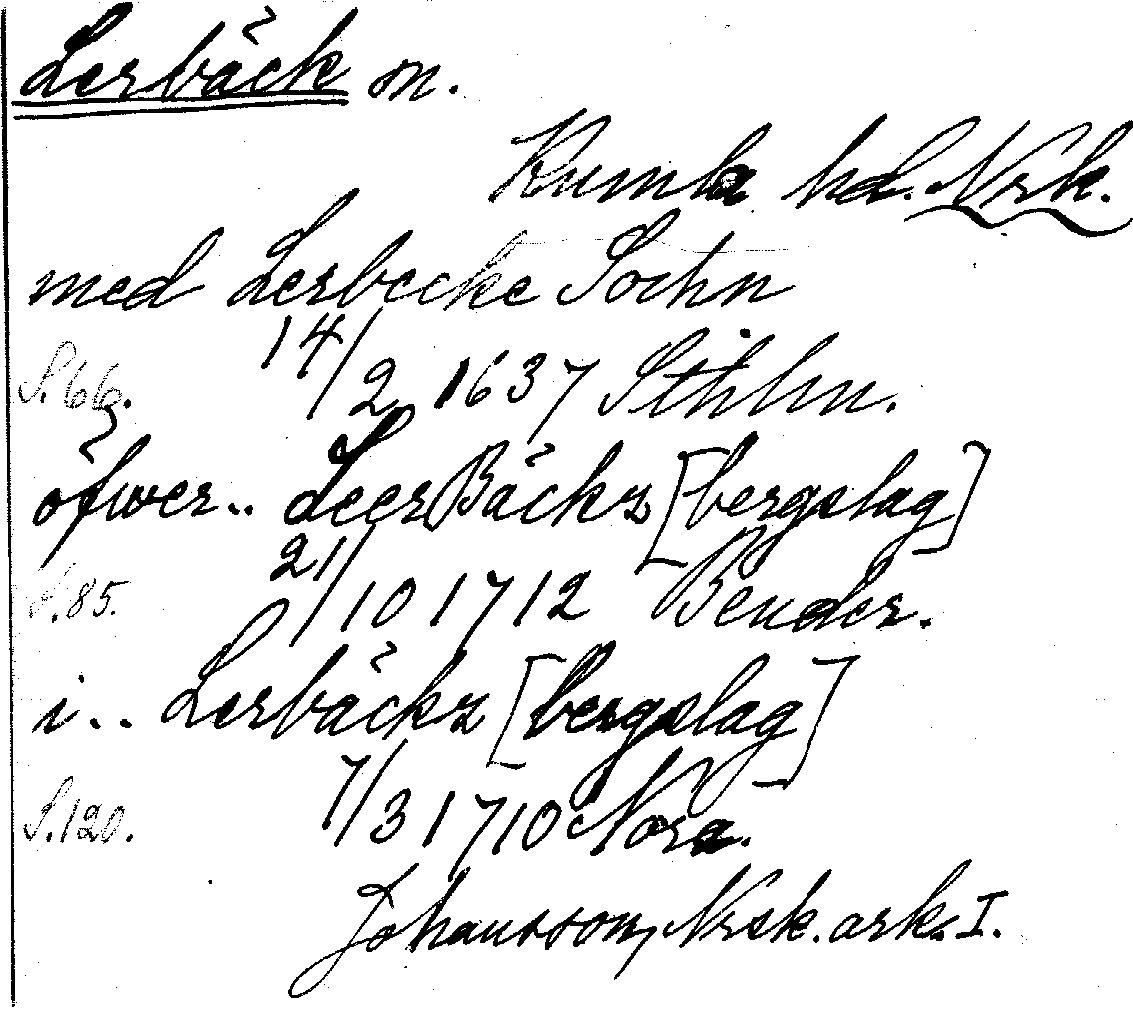 Lerbäck sn.
Kumla hd. Nrk.
med Lerbecke Sochn
S. 66. 14/2 1637 Sthlm.
öfwer.. LeerBäckz [bergslag]
S. 85. 21/10 1712 Bender.
i.. Lerbäckz [bergslag]
S. 120. 7/3 1710 Nora.
Johansson, Nrsk. ark. I.